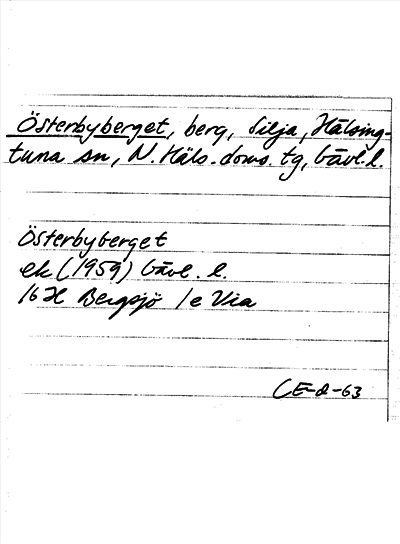 Österbyberget, berg, Silja, Hälsing-
tuna sn, N. Häls. doms. tg, Gävl. l.
Österbyberget
ek (1959) Gävl. l.
16 H Bergsjö 1e Via
CE-d-63